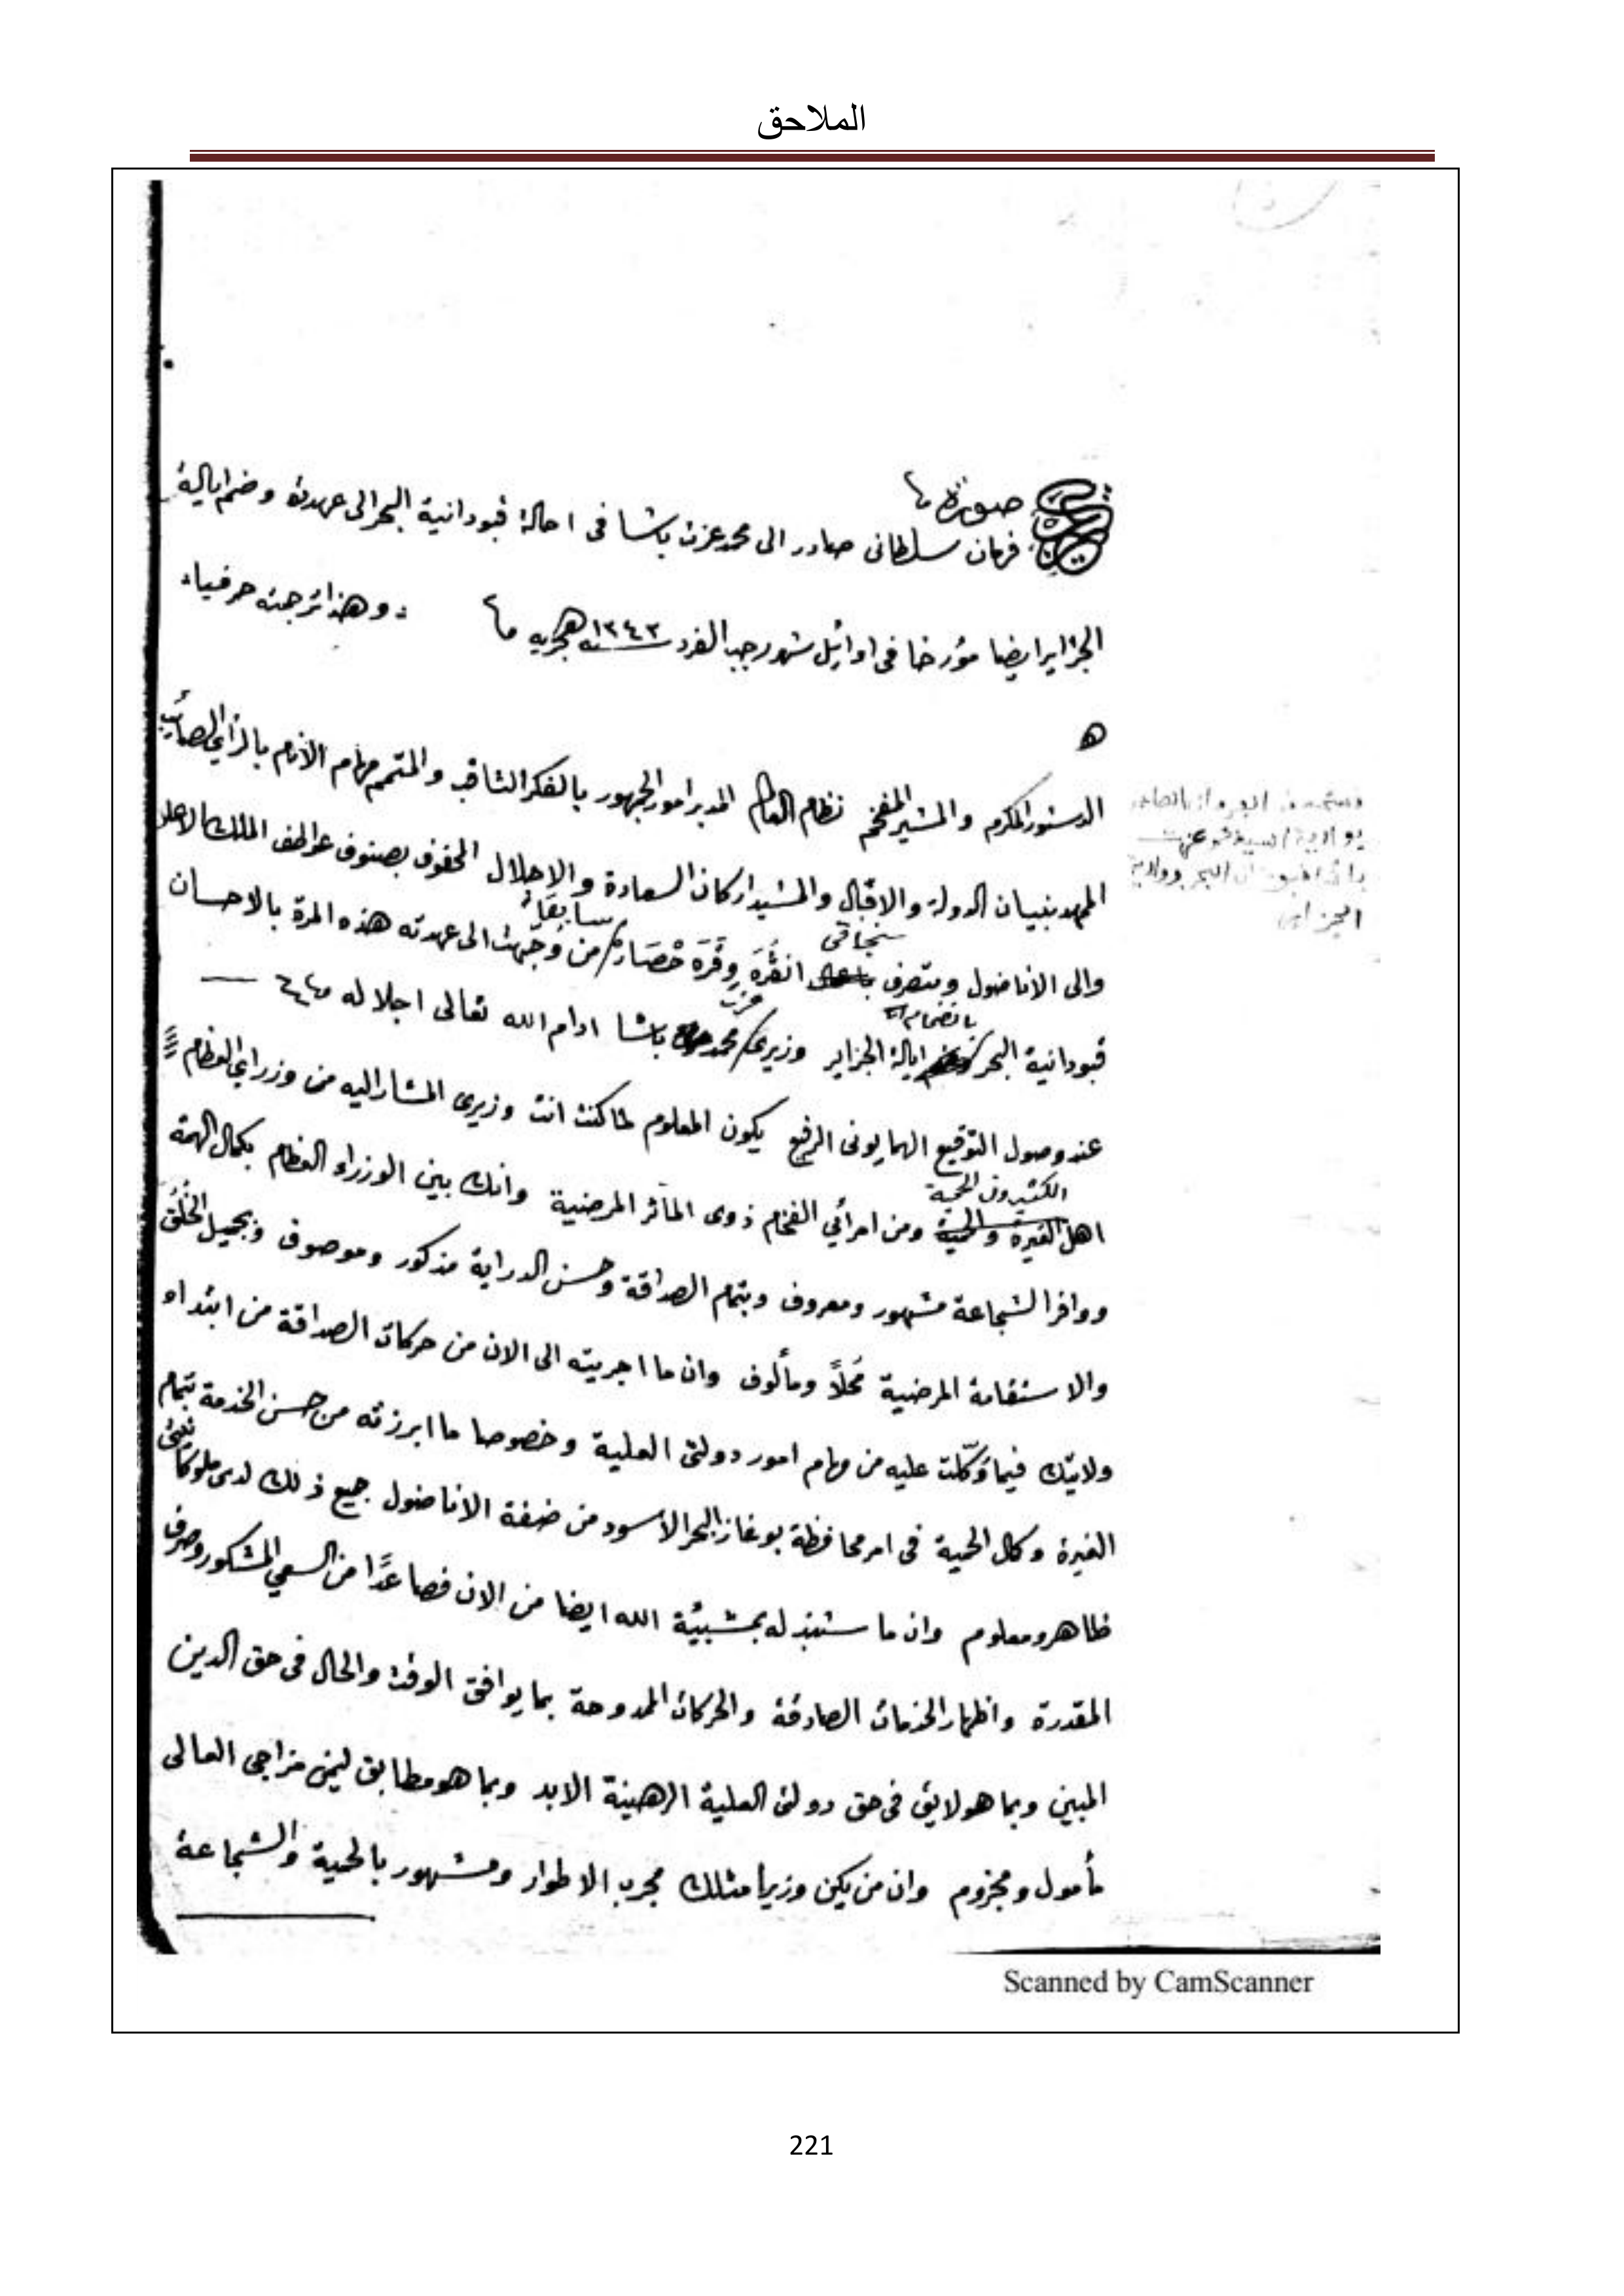 الملاحق
صورة
فرمان سلطانى صادر الى محمد عزت باشا فى احالة قبودانية البحر الى عهدته وضم ايالة
الجزاير ايضا مؤرخا فى اوائل شهر رجب الفرد سنه ١٢٤٣ هجريه وهذا ترجمته حرفيا
الدستور المكرم والمشير المفخم نظام العالم المدبر امور الجمهور بالفكر الثاقب والمتمم مهام الأنام بالرأي الصائب
الممهد بنيان الدولة والاقبال والمشيد اركان السعادة والاجلال المحفوف بصنوف عواطف الملك الاعلى
سنجاقى سابقا
والى الاناضول ومتصرف انقرة وقره حصار من وجهت الى عهدته هذه المرة بالاحسان
بانضمام عزت
قبودانية البحر ايالة الجزاير وزيرى محمد باشا ادام الله تعالى اجلاله
عند وصول التوقيع الهمايونى الرفيع يكون المعلوم لما كنت انت وزيرى المشار اليه من وزرايى العظام
الكثيرون الحمية
اهل الغيرة والحمية ومن امرائي الفخام ذوى المآثر المرضية وانك بين الوزراء العظام بكمال الهمة
ووافر الشجاعة مشهور ومعروف وبتمام الصداقة وحسن الدراية مذكور وموصوف وبجميل الخُلُق
والاستقامة المرضية محلاً ومألوف وان ما اجريته الى الان من حركات الصداقة من ابتداء
ولايتك فيما وكّلت عليه من مهام امور دولتى العلية وخصوصا ما ابرزته من حسن الخدمة بتمام
الغيرة وكمال الحمية فى امر محافظة بوغاز البحر الأسود من ضفة الاناضول جميع ذلك لدى ملوكانيتى
ظاهر ومعلوم وان ما ستبذله بمشيئة الله ايضا من الان فصاعدًا من السعي المشكور وصرف
المقدرة واظهار الخدمات الصادقة والحركات الممدوحة بما يوافق الوقت والحال فى حق الدين
المبين وبما هو لايق فى حق دولتى العلية الرهينة الابد وبما هو مطابق ليمن مزاجى العالى
مأمول ومجزوم وان من يكن وزيرا مثلك مجرب الاطوار ومشهور بالحمية والشجاعة
Scanned by CamScanner
221